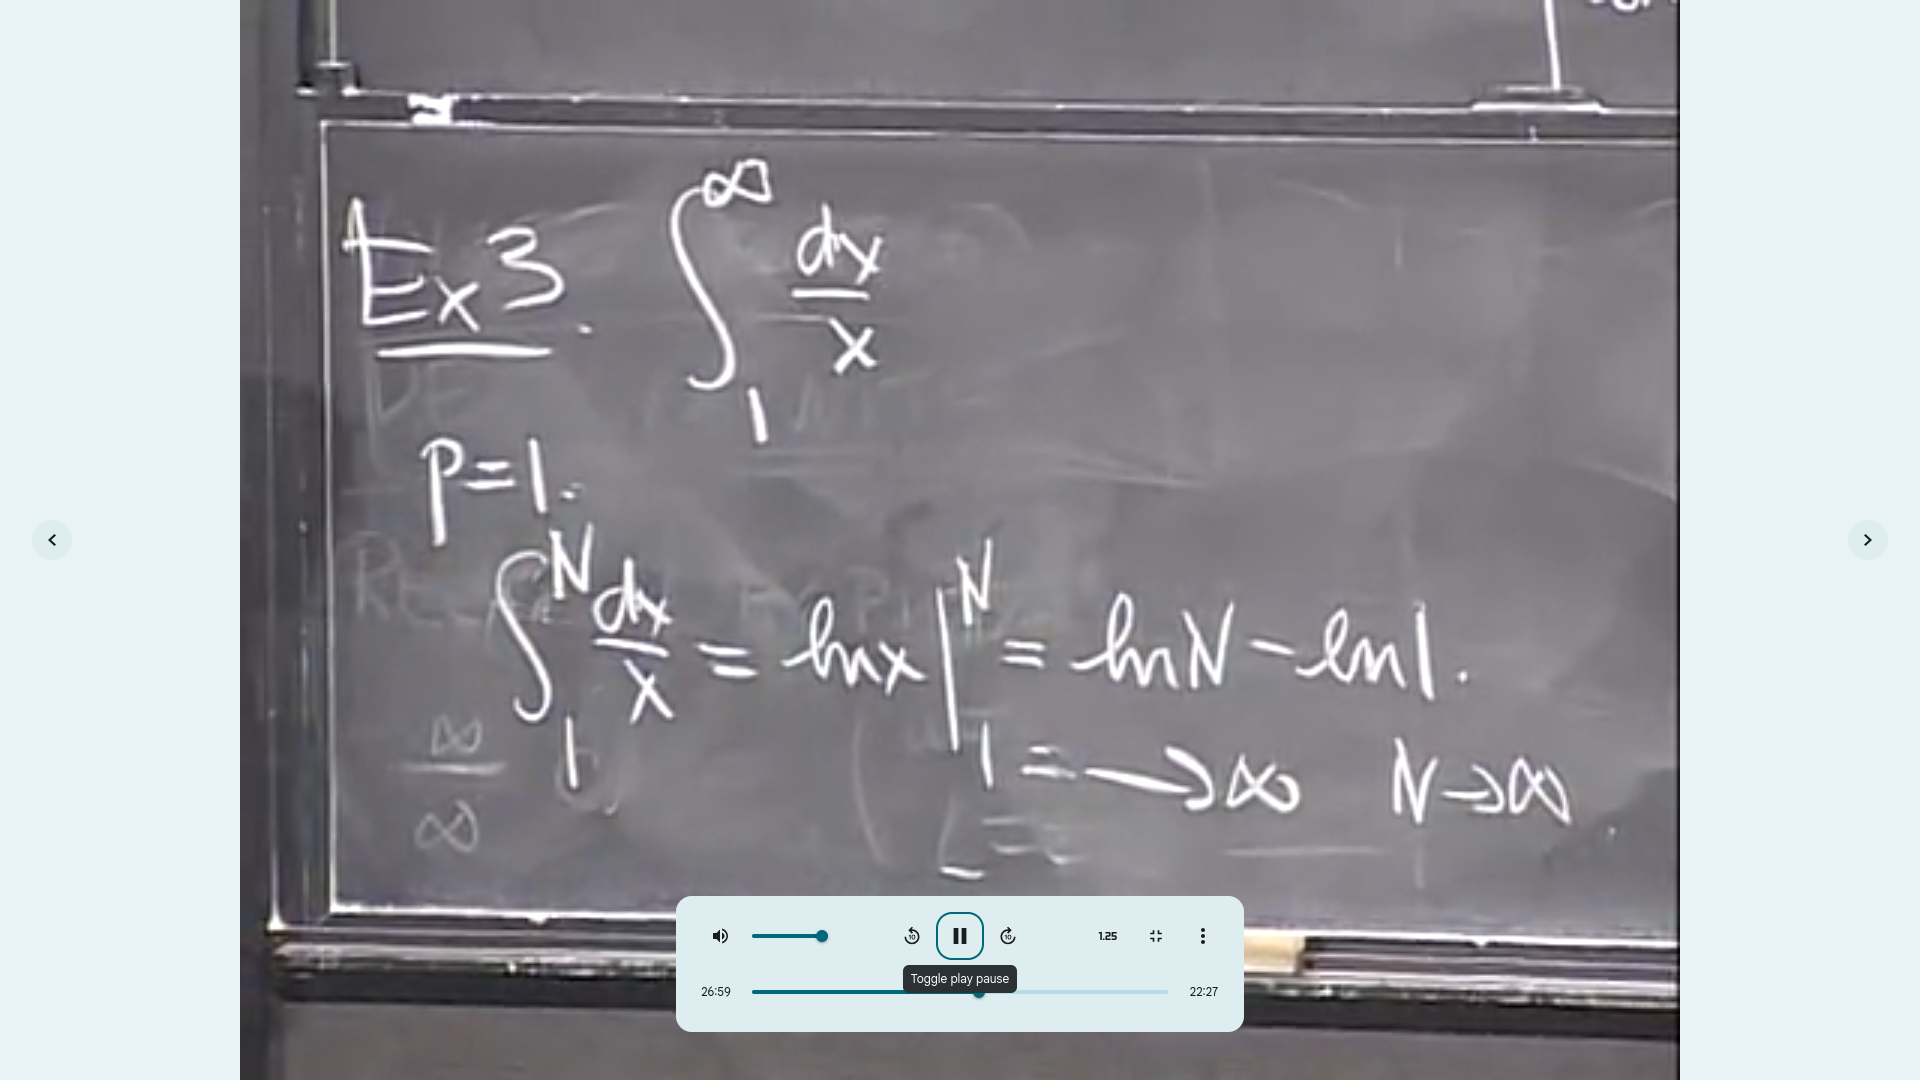 Ex 3. ∫_1^∞ dx/x
p=1.
∫_1^N dx/x = ln x |_1^N = ln N - ln 1.
= → ∞ N → ∞
∞/∞
1.25
Toggle play pause
26:59
22:27